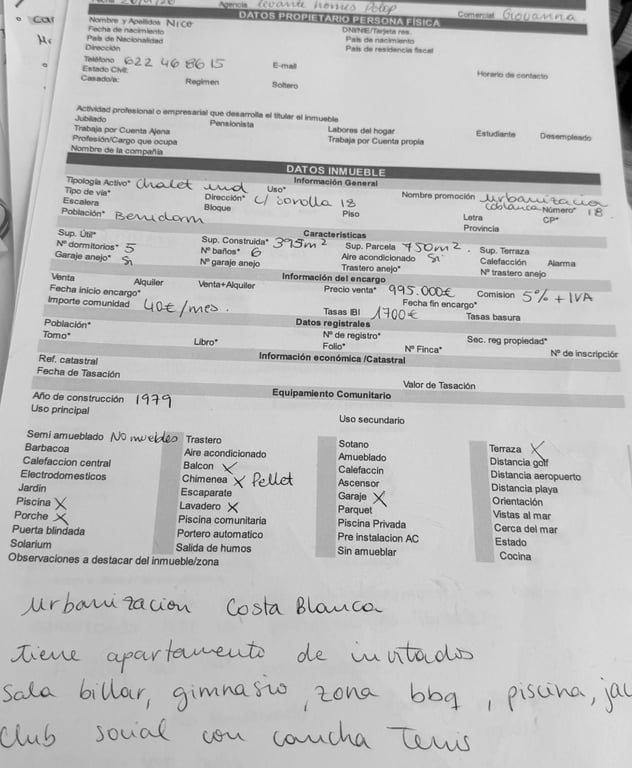 Agencia Levante homes Polop Comercial Giovanna
DATOS PROPIETARIO PERSONA FÍSICA
Nombre y Apellidos Nice DNI/NIE/Tarjeta res.
Fecha de nacimiento País de nacimiento
País de Nacionalidad País de residencia fiscal
Dirección
Teléfono 622 468615 E-mail Horario de contacto
Estado Civil:
Casado/a: Regimen Soltero
Actividad profesional o empresarial que desarrolla el titular el inmueble
Jubilado Pensionista Labores del hogar Estudiante Desempleado
Trabaja por Cuenta Ajena Trabaja por Cuenta propia
Profesión/Cargo que ocupa
Nombre de la compañía
DATOS INMUEBLE
Información General
Tipología Activo* chalet ind Uso* Nombre promoción urbanizacion
Tipo de vía* Dirección* c/ sorolla 18 Cblanca Número* 18
Escalera Bloque Piso Letra CP*
Población* Benidorm Provincia
Caracteristicas
Sup. Útil* Sup. Construida* 395m² Sup. Parcela 750m². Sup. Terraza
Nº dormitorios* 5 Nº baños* 6 Aire acondicionado Si Calefacción Alarma
Garaje anejo* Si Nº garaje anejo Trastero anejo* Nº trastero anejo
Información del encargo
Venta Alquiler Venta+Alquiler Precio venta* 995.000€ Comision 5% + IVA
Fecha inicio encargo* Fecha fin encargo*
Importe comunidad 40€/mes. Tasas IBI 1700€ Tasas basura
Datos registrales
Población* Nº de registro* Sec. reg propiedad*
Tomo* Libro* Folio* Nº Finca* Nº de inscripción
Información económica /Catastral
Ref. catastral
Fecha de Tasación Valor de Tasación
Equipamiento Comunitario
Año de construcción 1979
Uso principal Uso secundario
Semi amueblado No muebles Trastero Sotano Terraza X
Barbacoa Aire acondicionado Amueblado Distancia golf
Calefaccion central Balcon X Calefaccin Distancia aeropuerto
Electrodomesticos Chimenea X Pellet Ascensor Distancia playa
Jardin Escaparate Garaje X Orientación
Piscina X Lavadero X Parquet Vistas al mar
Porche X Piscina comunitaria Piscina Privada Cerca del mar
Puerta blindada Portero automatico Pre instalacion AC Estado
Solarium Salida de humos Sin amueblar Cocina
Observaciones a destacar del inmueble/zona
Urbanizacion Costa Blanca
tiene apartamento de invitados
Sala billar, gimnasio, zona bbq, piscina, jac
Club social con cancha Tenis